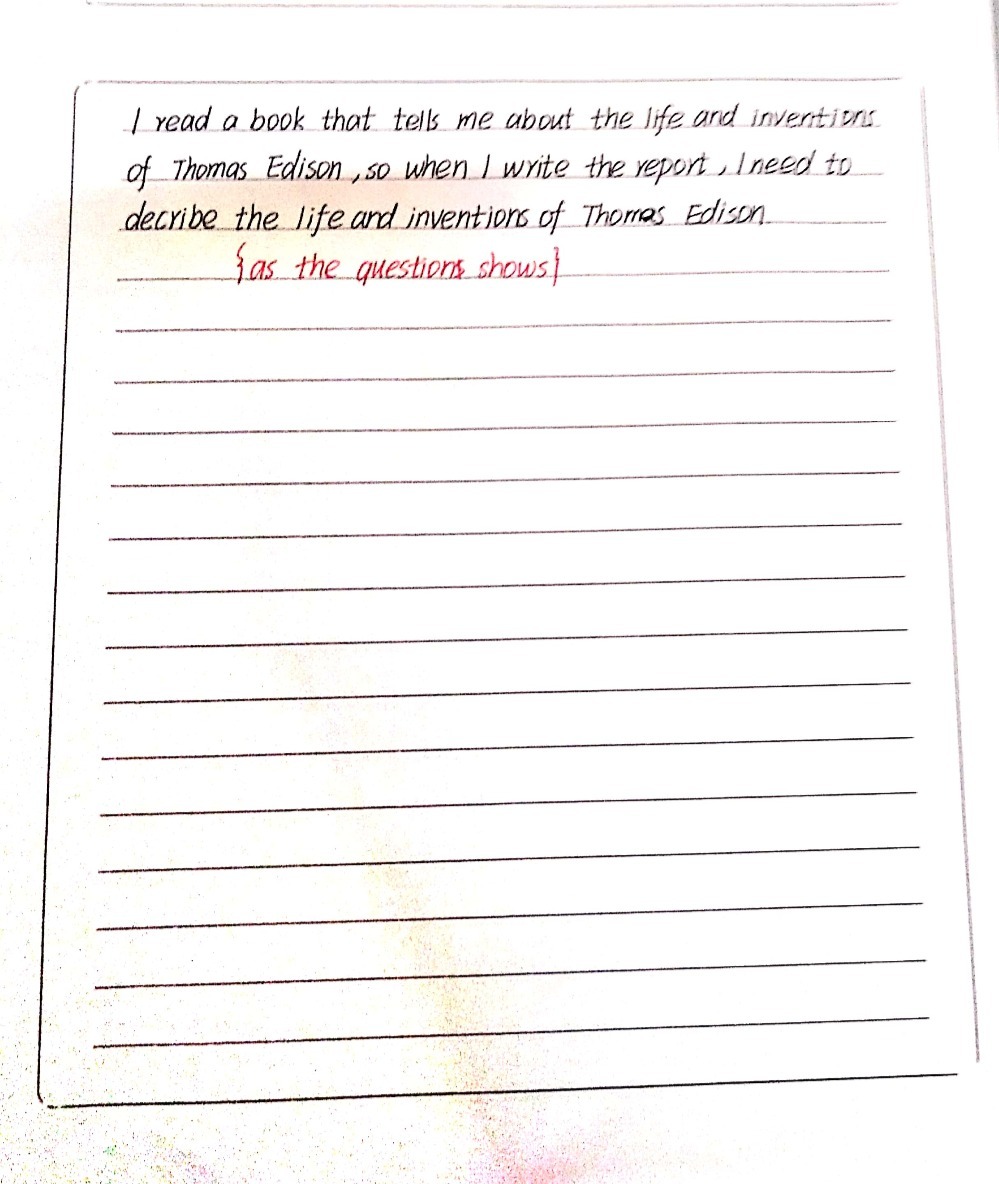 I read a book that tells me about the life and inventions
of Thomas Edison, so when I write the report, I need to
decribe the life and inventions of Thomas Edison.
{as the questions shows}